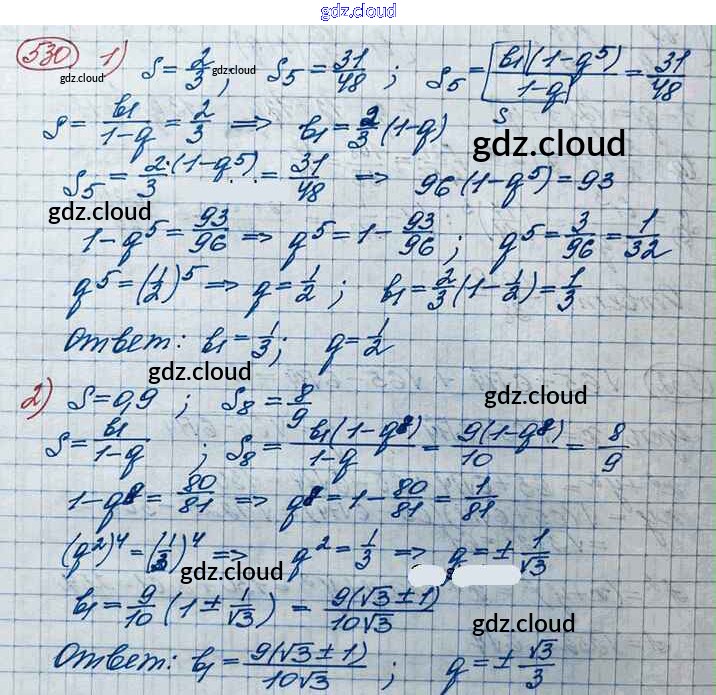 gdz.cloud
530 1) S = 2/3; S₅ = 31/48; S₅ = b₁(1-q⁵)/1-q = 31/48
gdz.cloud gdz.cloud
S
gdz.cloud
S = b₁/1-q = 2/3 ⇒ b₁ = 2/3 (1-q)
S₅ = 2·(1-q⁵)/3 = 31/48 ⇒ 96(1-q⁵) = 93
gdz.cloud gdz.cloud
1-q⁵ = 93/96 ⇒ q⁵ = 1 - 93/96; q⁵ = 3/96 = 1/32
q⁵ = (1/2)⁵ ⇒ q = 1/2; b₁ = 2/3 (1 - 1/2) = 1/3
Ответ: b₁ = 1/3; q = 1/2
gdz.cloud
2) S = 0,9; S₈ = 8/9
gdz.cloud
S = b₁/1-q; S₈ = b₁(1-q⁸)/1-q = 9(1-q⁸)/10 = 8/9
1-q⁸ = 80/81 ⇒ q⁸ = 1 - 80/81 = 1/81
(q²)⁴ = (1/3)⁴ ⇒ q² = 1/3 ⇒ q = ± 1/√3
gdz.cloud gdz.cloud
b₁ = 9/10 (1 ± 1/√3) = 9(√3 ± 1)/10√3
gdz.cloud
Ответ: b₁ = 9(√3 ± 1)/10√3; q = ± √3/3
gdz.cloud